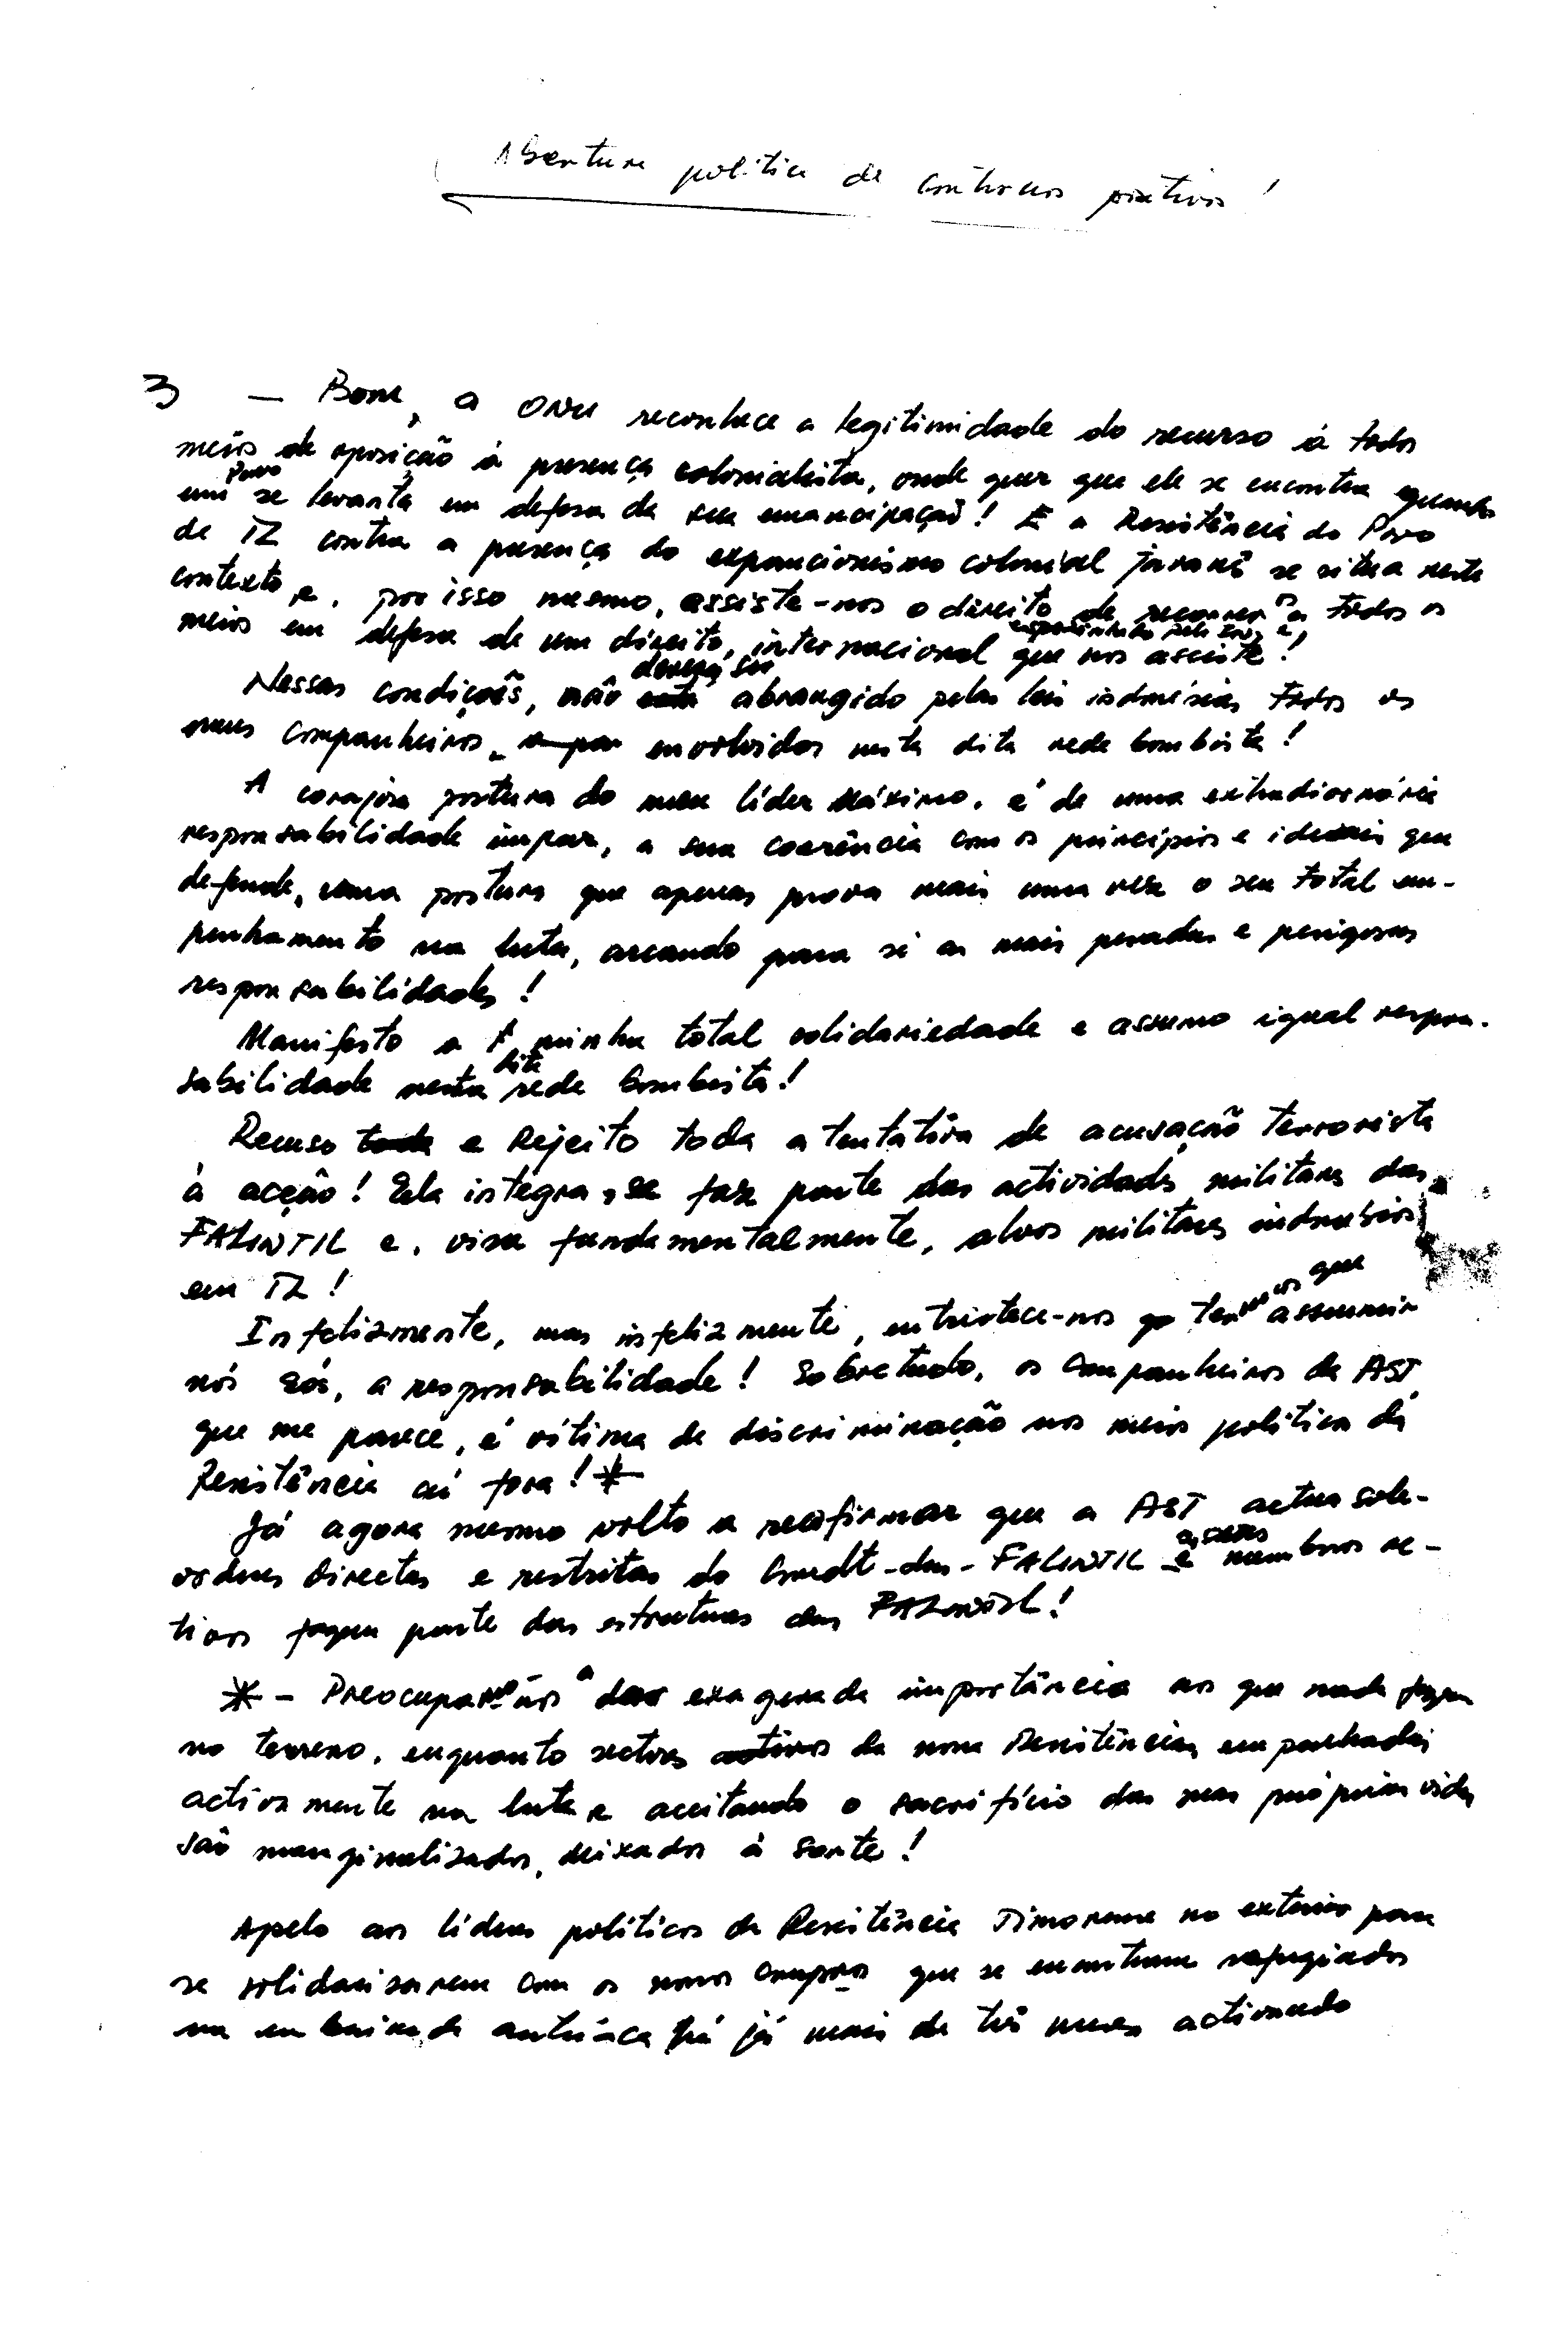 Abertura política de contornos positivos!
3 — Bom, a ONU reconhece a legitimidade do recurso à todos
meios de oposição à presença colonialista, onde quer que ele se encontra e quando
um Povo se levanta em defesa da sua emancipação! E a Resistência do Povo
de TL contra a presença do expancionismo colonial javanês se situa neste
contexto e, por isso mesmo, assiste-nos o direito de recorrer a todos os
meios em defesa de um direito, internacional que nos assiste!
Nessas condições, não deverá ser abrangido pelas leis indonésias todos os
meus companheiros envolvidos nesta dita rede bombista!
A corajosa postura do meu líder Máximo, é de uma extradiornária
responsabilidade impar, a sua coerência com os princípios e ideais que
defende, uma postura que apenas prova mais uma vez o seu total em-
penhamento na luta, arcando para si as mais pesadas e perigosas
responsabilidades!
Manifesto a minha total solidariedade e assumo igual respon-
sabilidade nesta dita rede bombista!
Recuso e Rejeito toda a tentativa de acusação terrorista
à acção! Ela integra, se faz parte das actividades militares das
FALINTIL e, visa fundamentalmente, alvos militares indonésios
em TL!
Infelizmente, mas infelizmente, entristece-nos que temos que assumir
nós sós, a responsabilidade! Sobretudo, os companheiros da AST
que me parece, é vítima de discriminação nos meios política da
Resistência cá fora! *
Já agora mesmo volto a reafirmar que a AST actua sob-
ordens directas e restritas do Comdt-das-FALINTIL e membros ac-
tivos fazem parte das estruturas das FALINTIL!
* - Preocupa-nos a exagerada importância aos que nada fazem
no terreno, enquanto sectores da nossa Resistência, empenhados
activamente na luta e aceitando o sacrifício das suas próprias vidas
são marginalizados, deixados à sorte!
Apelo aos líderes políticos da Resistência Timorense no exterior para
se solidarisarem com os nossos compas que se encontram refugiados
na embaixada austríaca há já mais de três meses activando